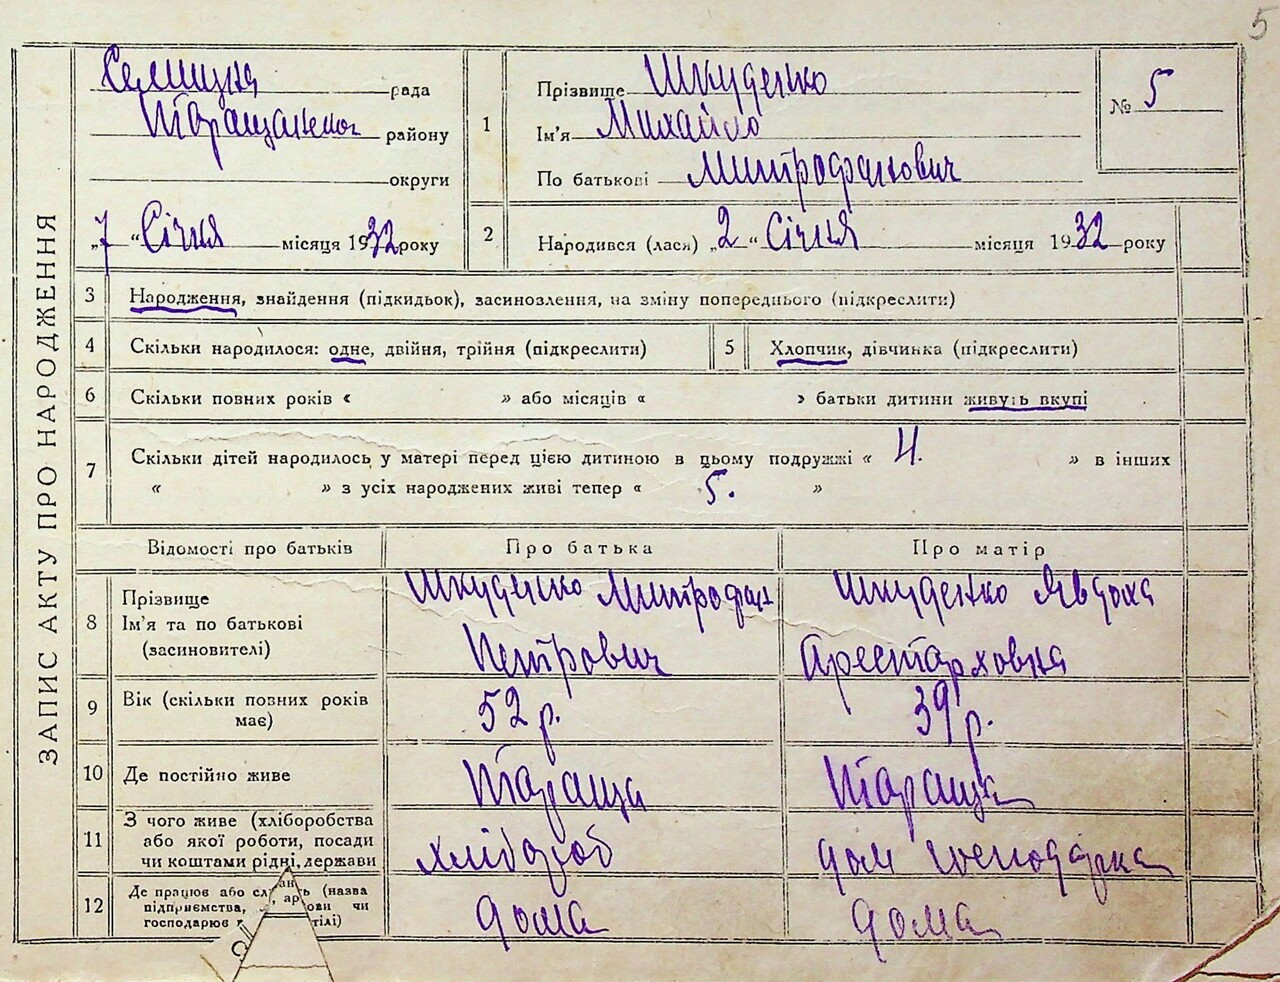 5
ЗАПИС АКТУ ПРО НАРОДЖЕННЯ
Селищна рада
Таращанськог району
округи
„7“ Січня місяця 1932 року
1
Прізвище Шкуденко
Ім'я Михайло
По батькові Митрофанович
№ 5
2
Народився (лася) „2“ Січня місяця 1932 року
3 Народження, знайдення (підкидьок), засиновлення, на зміну попереднього (підкреслити)
4 Скільки народилося: одне, двійня, трійня (підкреслити)
5 Хлопчик, дівчинка (підкреслити)
6 Скільки повних років « » або місяців « » батьки дитини живуть вкупі
7 Скільки дітей народилось у матері перед цією дитиною в цьому подружжі « 4. » в інших
« » з усіх народжених живі тепер « 5. »
Відомості про батьків Про батька Про матір
8 Прізвище
Ім'я та по батькові
(засиновителі)
Шкуденко Митрофан
Петрович
Шкуденко Явдоха
Арестарховна
9 Вік (скільки повних років
має)
52 р. 39 р.
10 Де постійно живе Тараща Тараща
11 З чого живе (хліборобства
або якої роботи, посади
чи коштами рідні, держави
хлібороб дом господарка
12 Де працює або (назва
підприємства, чи
господарює
дома дома